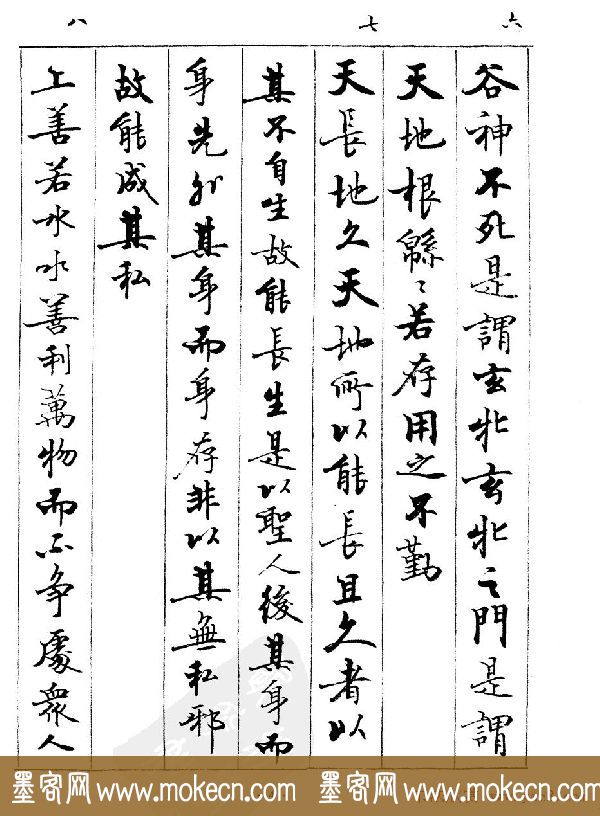 六
谷神不死是謂玄牝玄牝之門是謂
天地根緜〻若存用之不勤
七
天長地久天地所以能長且久者以
其不自生故能長生是以聖人後其身而
身先外其身而身存非以其無私邪
故能成其私
八
上善若水水善利萬物而不争處衆人
墨客网 www.mokecn.com 墨客网 www.mokecn.com